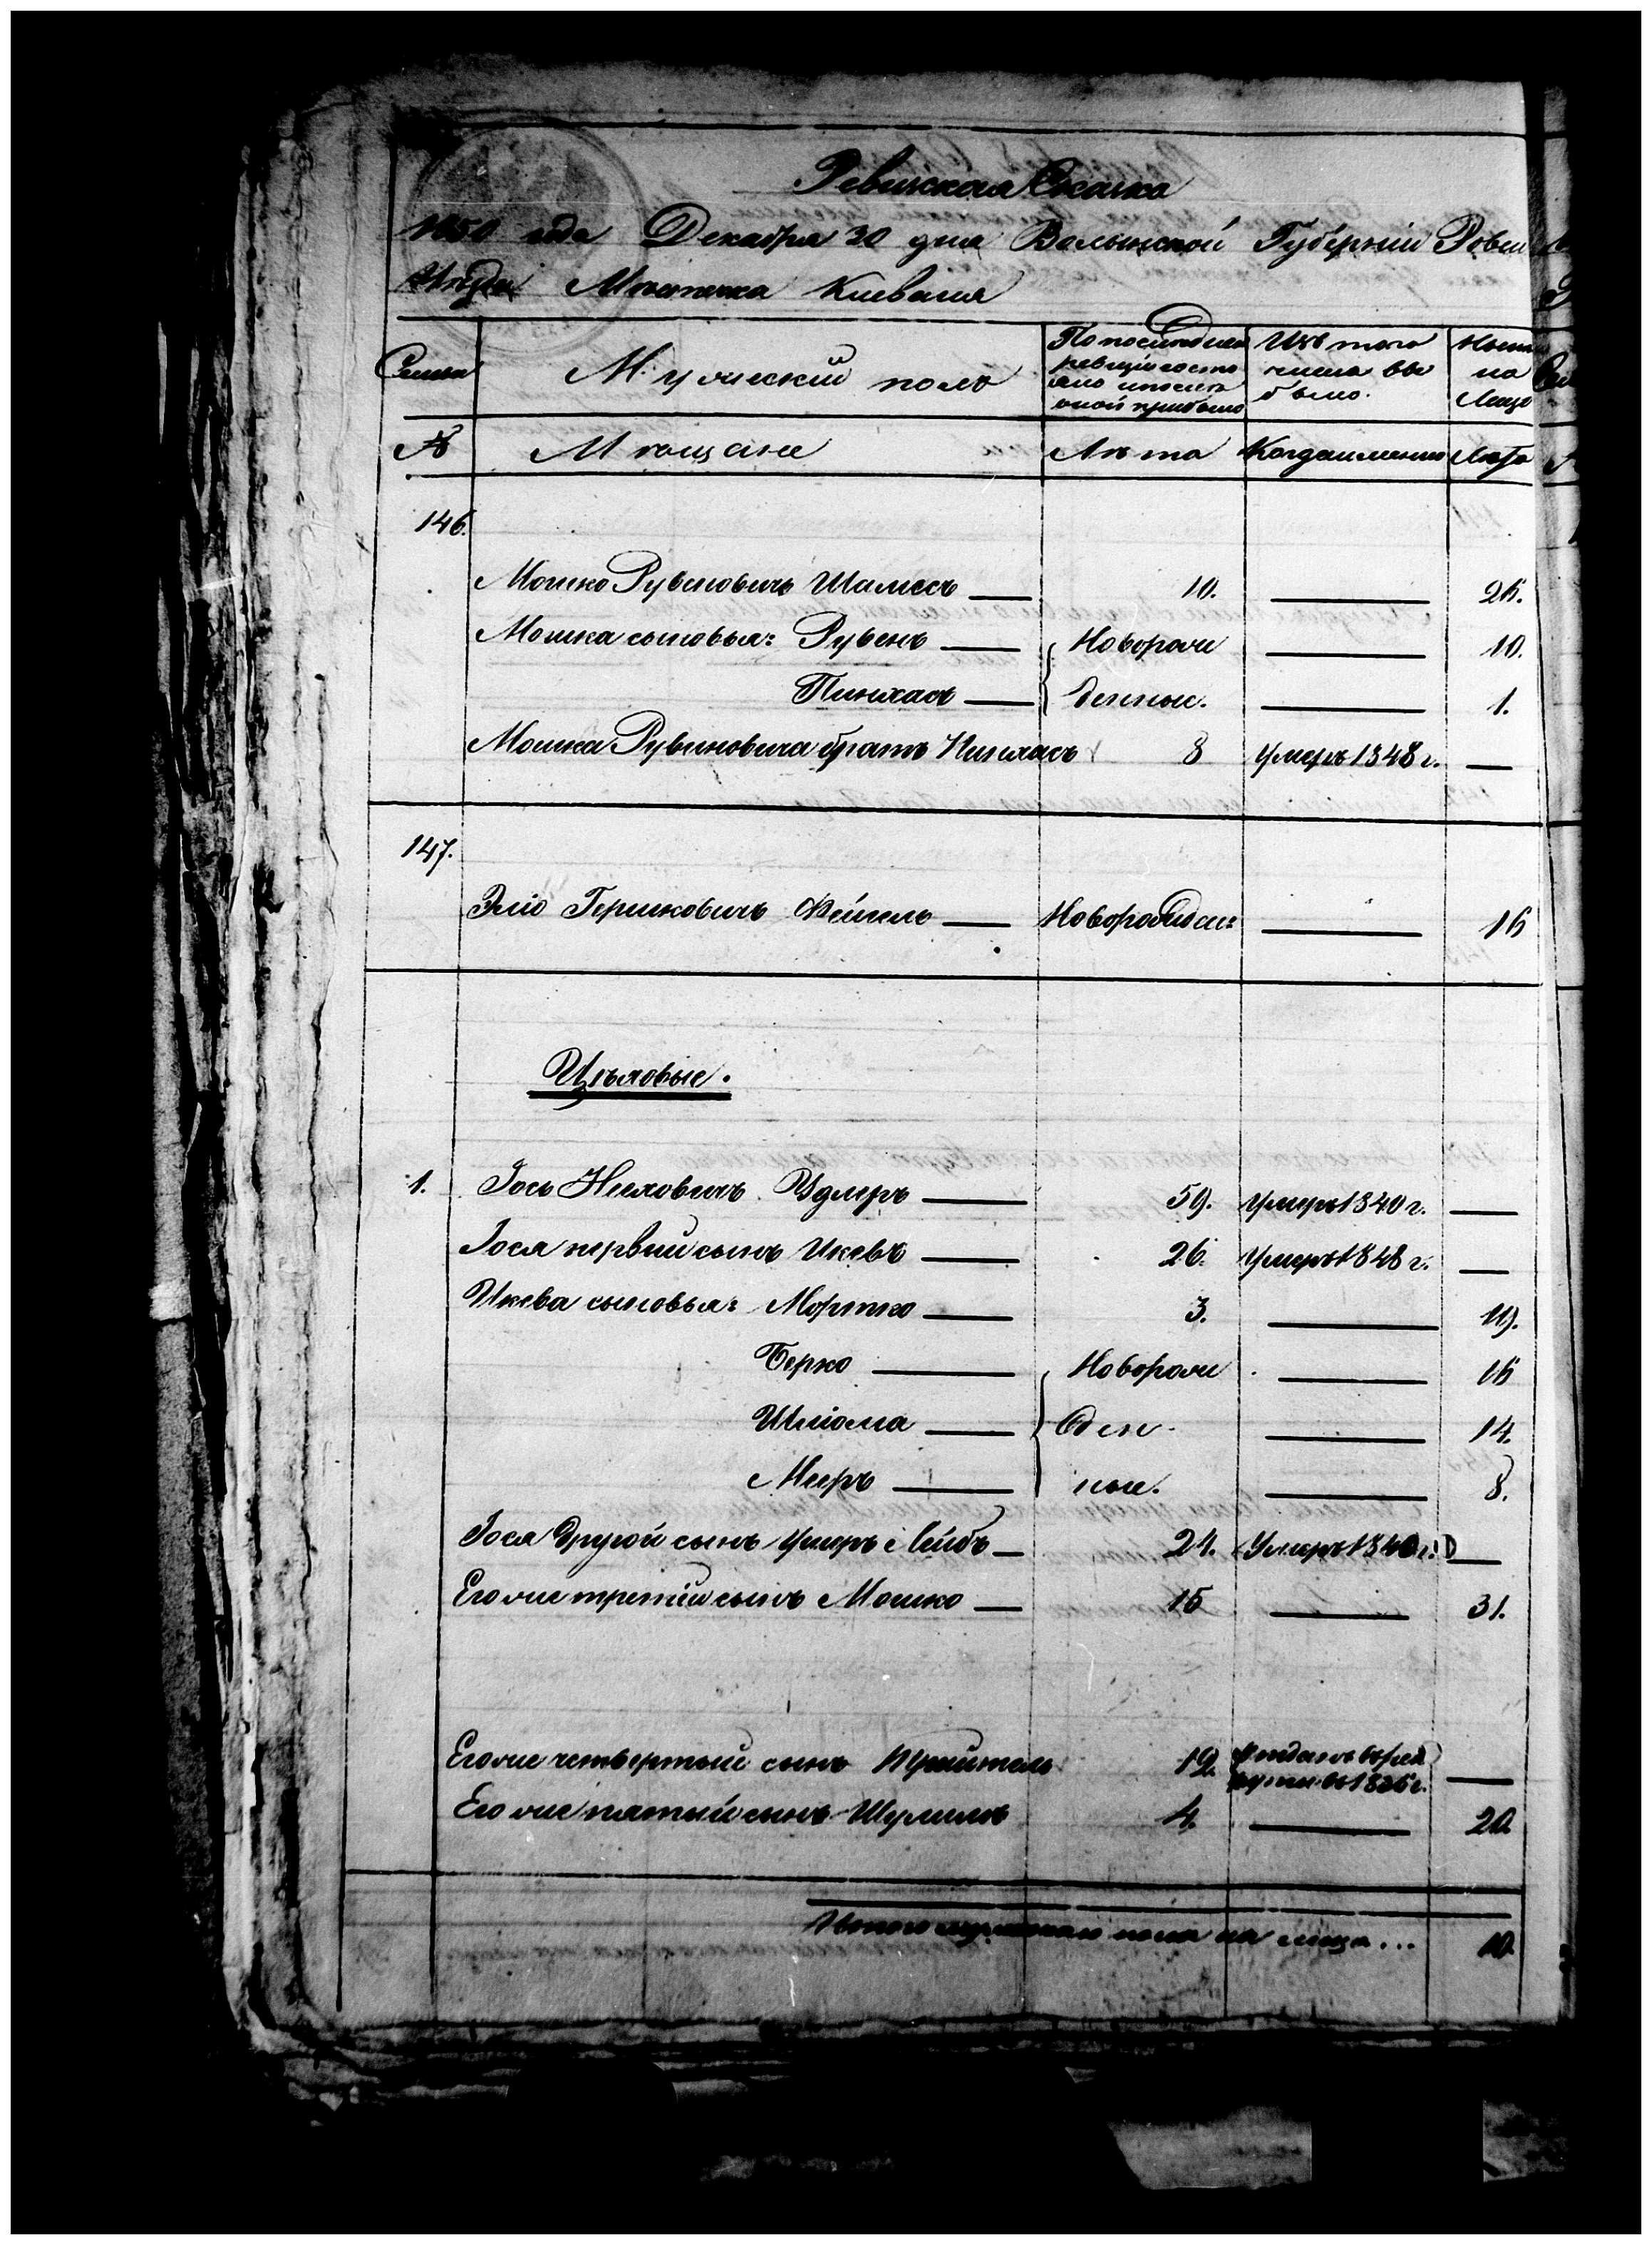 Ревизская Сказка
1850 года Декабря 30 дня Волынской Губернии Ровен
Уезда Местечка Клеваня
Семьи
Мужеский полъ
По последней
ревизии состо
яло и после
оной прибыло
Изъ того
числа вы
было.
Ныне
на
Лицо
№
Мещане
Лета
Когда именно
Лета
146.
Мошко Рувиновичъ Шамесъ — 10. — 26.
Мошка сыновья: Рувенъ — Новорож — 10.
Пинхасъ — денные. — 1.
Мошка Рувиновича братъ Пинхасъ 8 умеръ 1848 г. —
147.
Элio Гершковичъ Фейгель — Новорожден: — 16
Цеховые.
1. Iось Нухимовичъ — 59. умеръ 1840 г. —
Iося первый сынъ Икевъ — 26. умеръ 1848 г. —
Икева сыновья: Мортко — 3. — 19.
Берко — Новорож — 16
Шлiома — ден — 14.
Мееръ — ные. — 8.
Iося другой сынъ Лейбъ — 21. Умеръ 1840 г. —
Его же третий сынъ Мошко — 15 — 31.
Его же четвертый сынъ 12. отданъ въ рек
руты въ —
Его же пятый сынъ Шулимъ 4. — 20.
Итого мужеска пола на лицо... 10